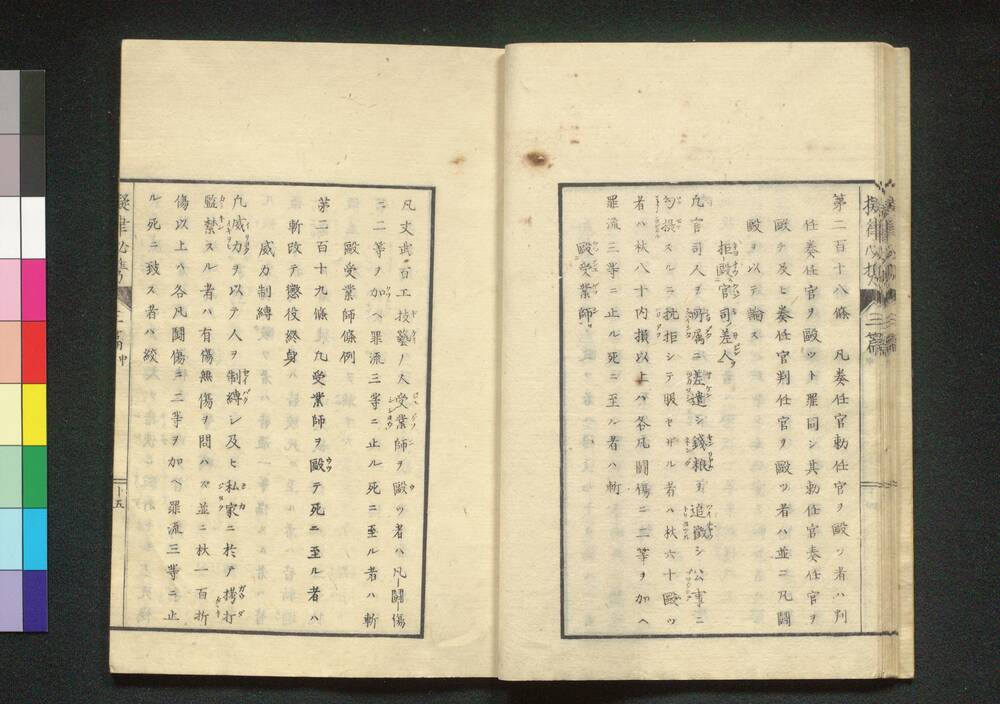 第二百十八條 凡奏任官勅任官ヲ毆ツ者ハ判
任奏任官ヲ毆ツト罪同シ其勅任官奏任官ヲ
毆テ及ヒ奏任官判任官ヲ毆ツ者ハ並ニ凡鬪
毆ヲ以テ論ス
拒毆官司差人
凡官司人ヲ所属ニ差遣シ錢粮ヲ追徴シ公事ニ
勾攝スルニ抗拒シテ服セサル者ハ杖六十毆ツ
者ハ杖八十内損以上ハ各凡鬪傷ニ二等ヲ加ヘ
罪流三等ニ止ル死ニ至ル者ハ斬
毆受業師
凡文武百工技藝ノ人受業師ヲ毆ツ者ハ凡鬪傷
ニ二等ヲ加ヘ罪流三等ニ止ル死ニ至ル者ハ斬
毆受業師條例
第二百十九條 凡受業師ヲ毆テ死ニ至ル者ハ
斬改テ懲役終身
威力制縛
凡威力ヲ以テ人ヲ制縛シ及ヒ私家ニ於テ拷打
監禁スル者ハ有傷無傷ヲ問ハス並ニ杖一百折
傷以上ハ各凡鬪傷ニ二等ヲ加ヘ罪流三等ニ止
ル死ニ致ス者ハ絞
三篇 中
十五